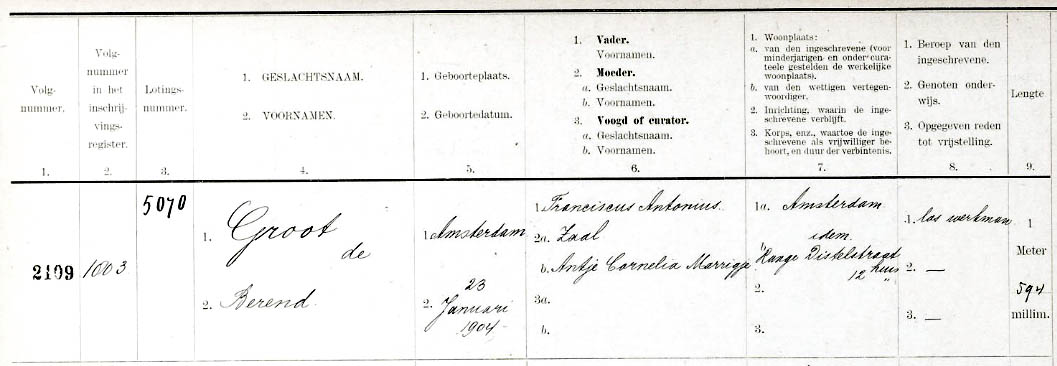 Volg-
nummer.
1.
Volg-
nummer
in het
inschrij-
vings-
register.
2.
Lotings-
nummer.
3.
1. GESLACHTSNAAM.
2. VOORNAMEN.
4.
1. Geboorteplaats.
2. Geboortedatum.
5.
1. Vader.
Voornamen.
2. Moeder.
a. Geslachtsnaam.
b. Voornamen.
3. Voogd of curator.
a. Geslachtsnaam.
b. Voornamen.
6.
1. Woonplaats:
a. van den ingeschrevene (voor
minderjarigen en onder cura-
teele gestelden de werkelijke
woonplaats).
b. van den wettigen vertegen-
woordiger.
2. Inrichting, waarin de inge-
schrevene verblijft.
3. Korps, enz., waartoe de inge-
schrevene als vrijwilliger be-
hoort, en duur der verbintenis.
7.
1. Beroep van den
ingeschrevene.
2. Genoten onder-
wijs.
3. Opgegeven reden
tot vrijstelling.
8.
Lengte
9.
2109
1003
5070
1. Groot
de
2. Berend
1. Amsterdam
2. 23
Januari
1904
1. Franciscus Antonius.
2a. Zaal
b. Antje Cornelia Marrigje
3a.
b.
1a. Amsterdam
idem.
b. Haage Distelstraat
12 huis
2.
3.
1. los werkman
2. —
3. —
1
Meter
594
millim.